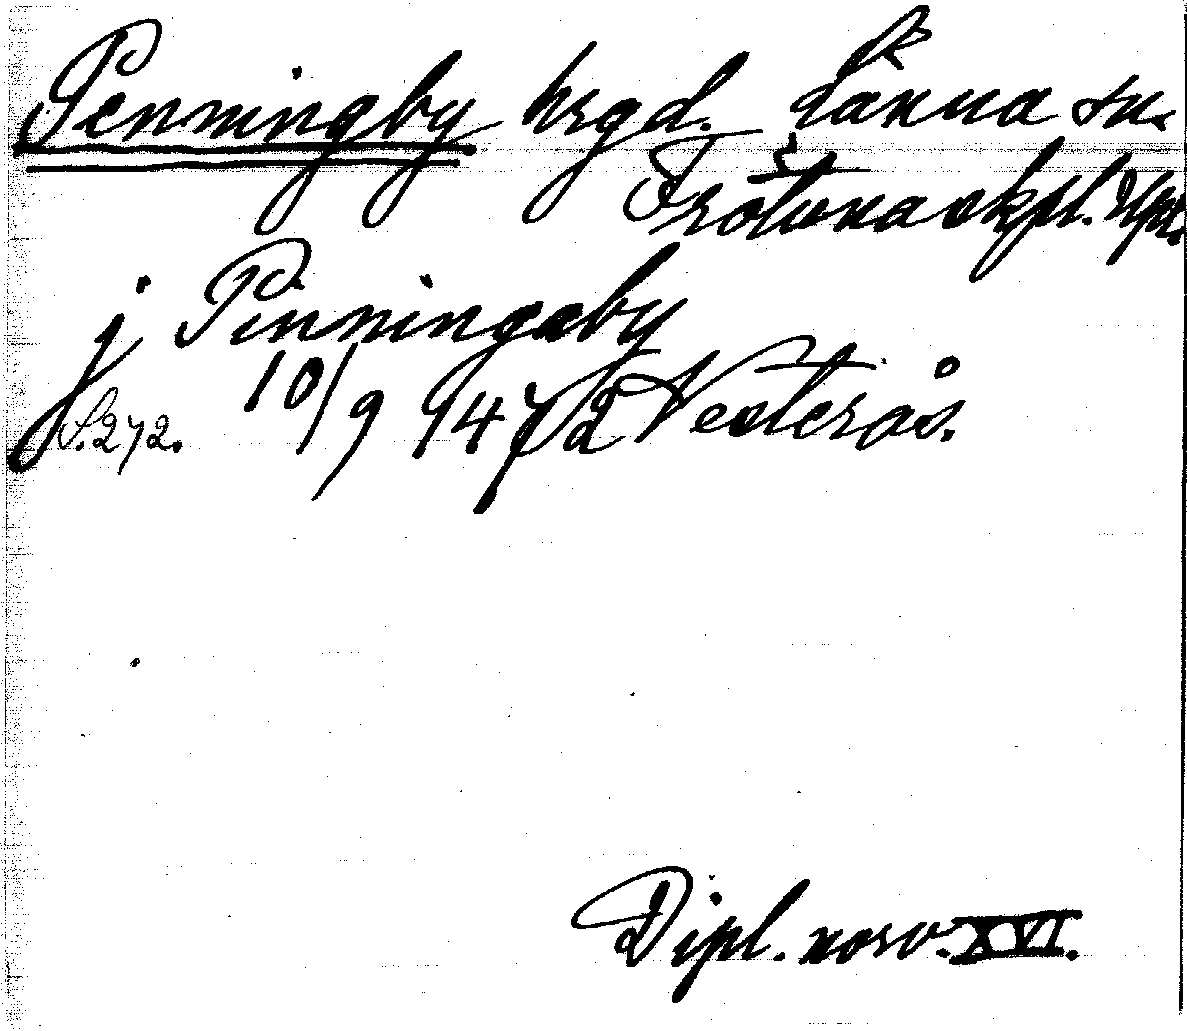 Penningby hrgd. Länna sn.
Frötuna skpl. Upl.
j Pinningaby
S. 272. 10/9 1472 Vesterås.
Dipl. norv. XVI.